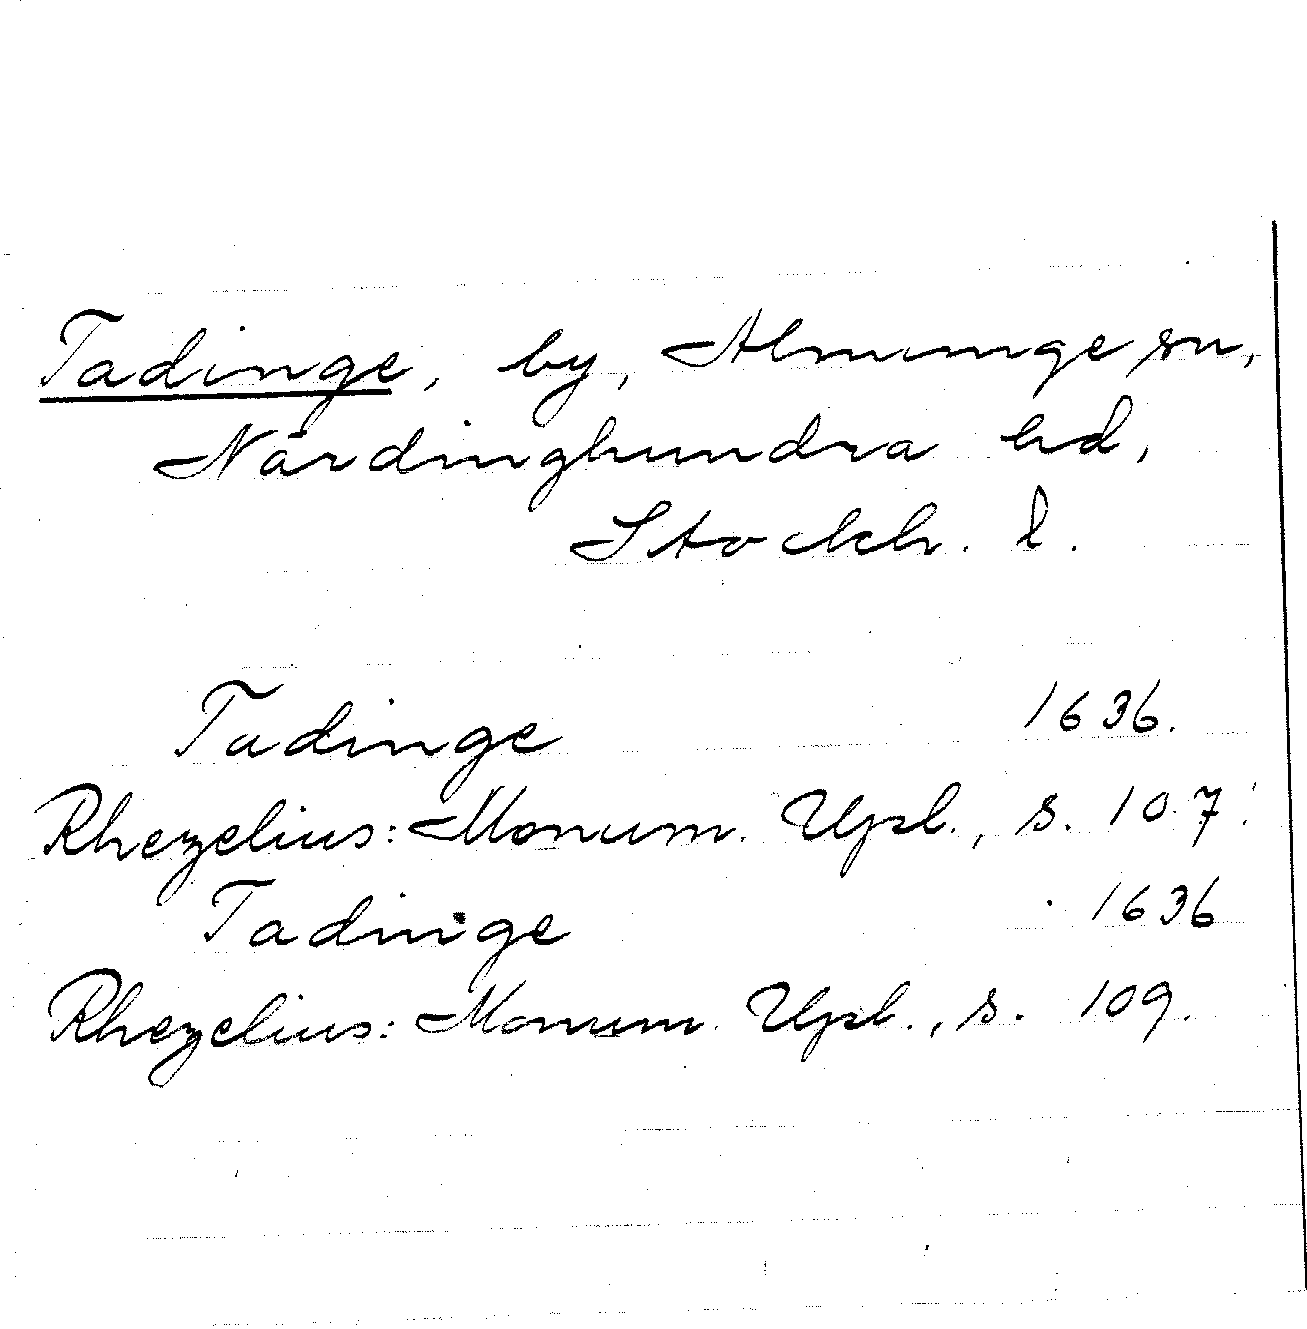 Tadinge, by, Almunge sn,
Närdinghundra hd,
Stockh. l.
Tadinge 1636.
Rhezelius: Monum. Upl., s. 107.
Tadinge 1636
Rhezelius: Monum. Upl., s. 109.